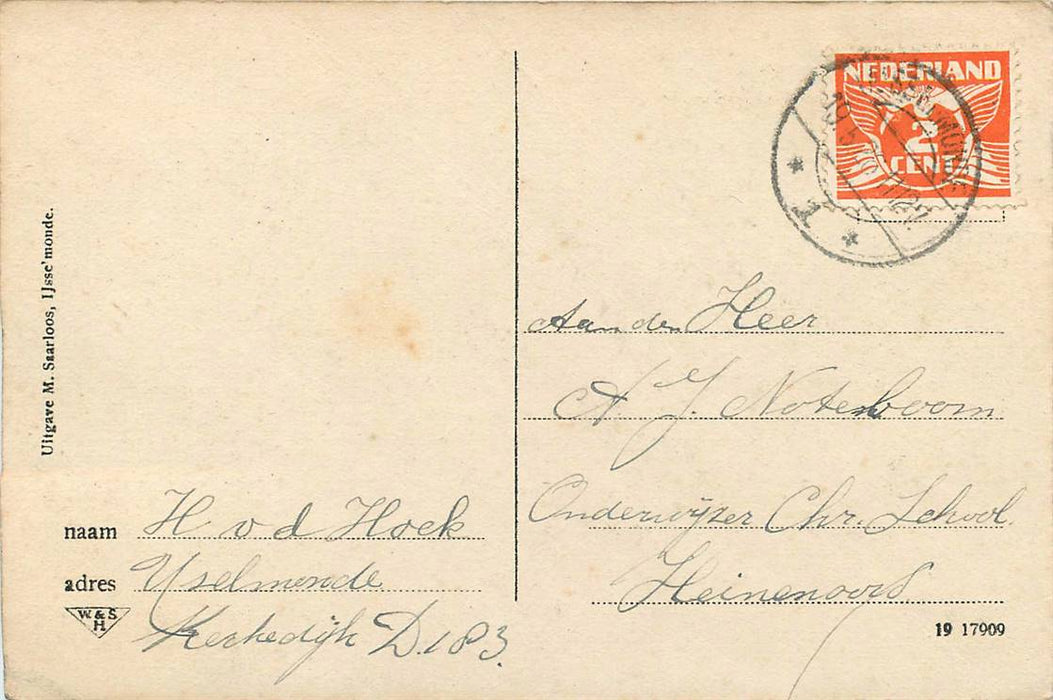 Uitgave M. Saarloos, IJsse'monde.
NEDERLAND
2
CENT
Aan den Heer
A J. Notenboom
Onderwijzer Chr. School
Heinenoord
naam H v d Hoek
adres IJselmonde
Kerkedijk D.183.
W. & S
H
19 17909